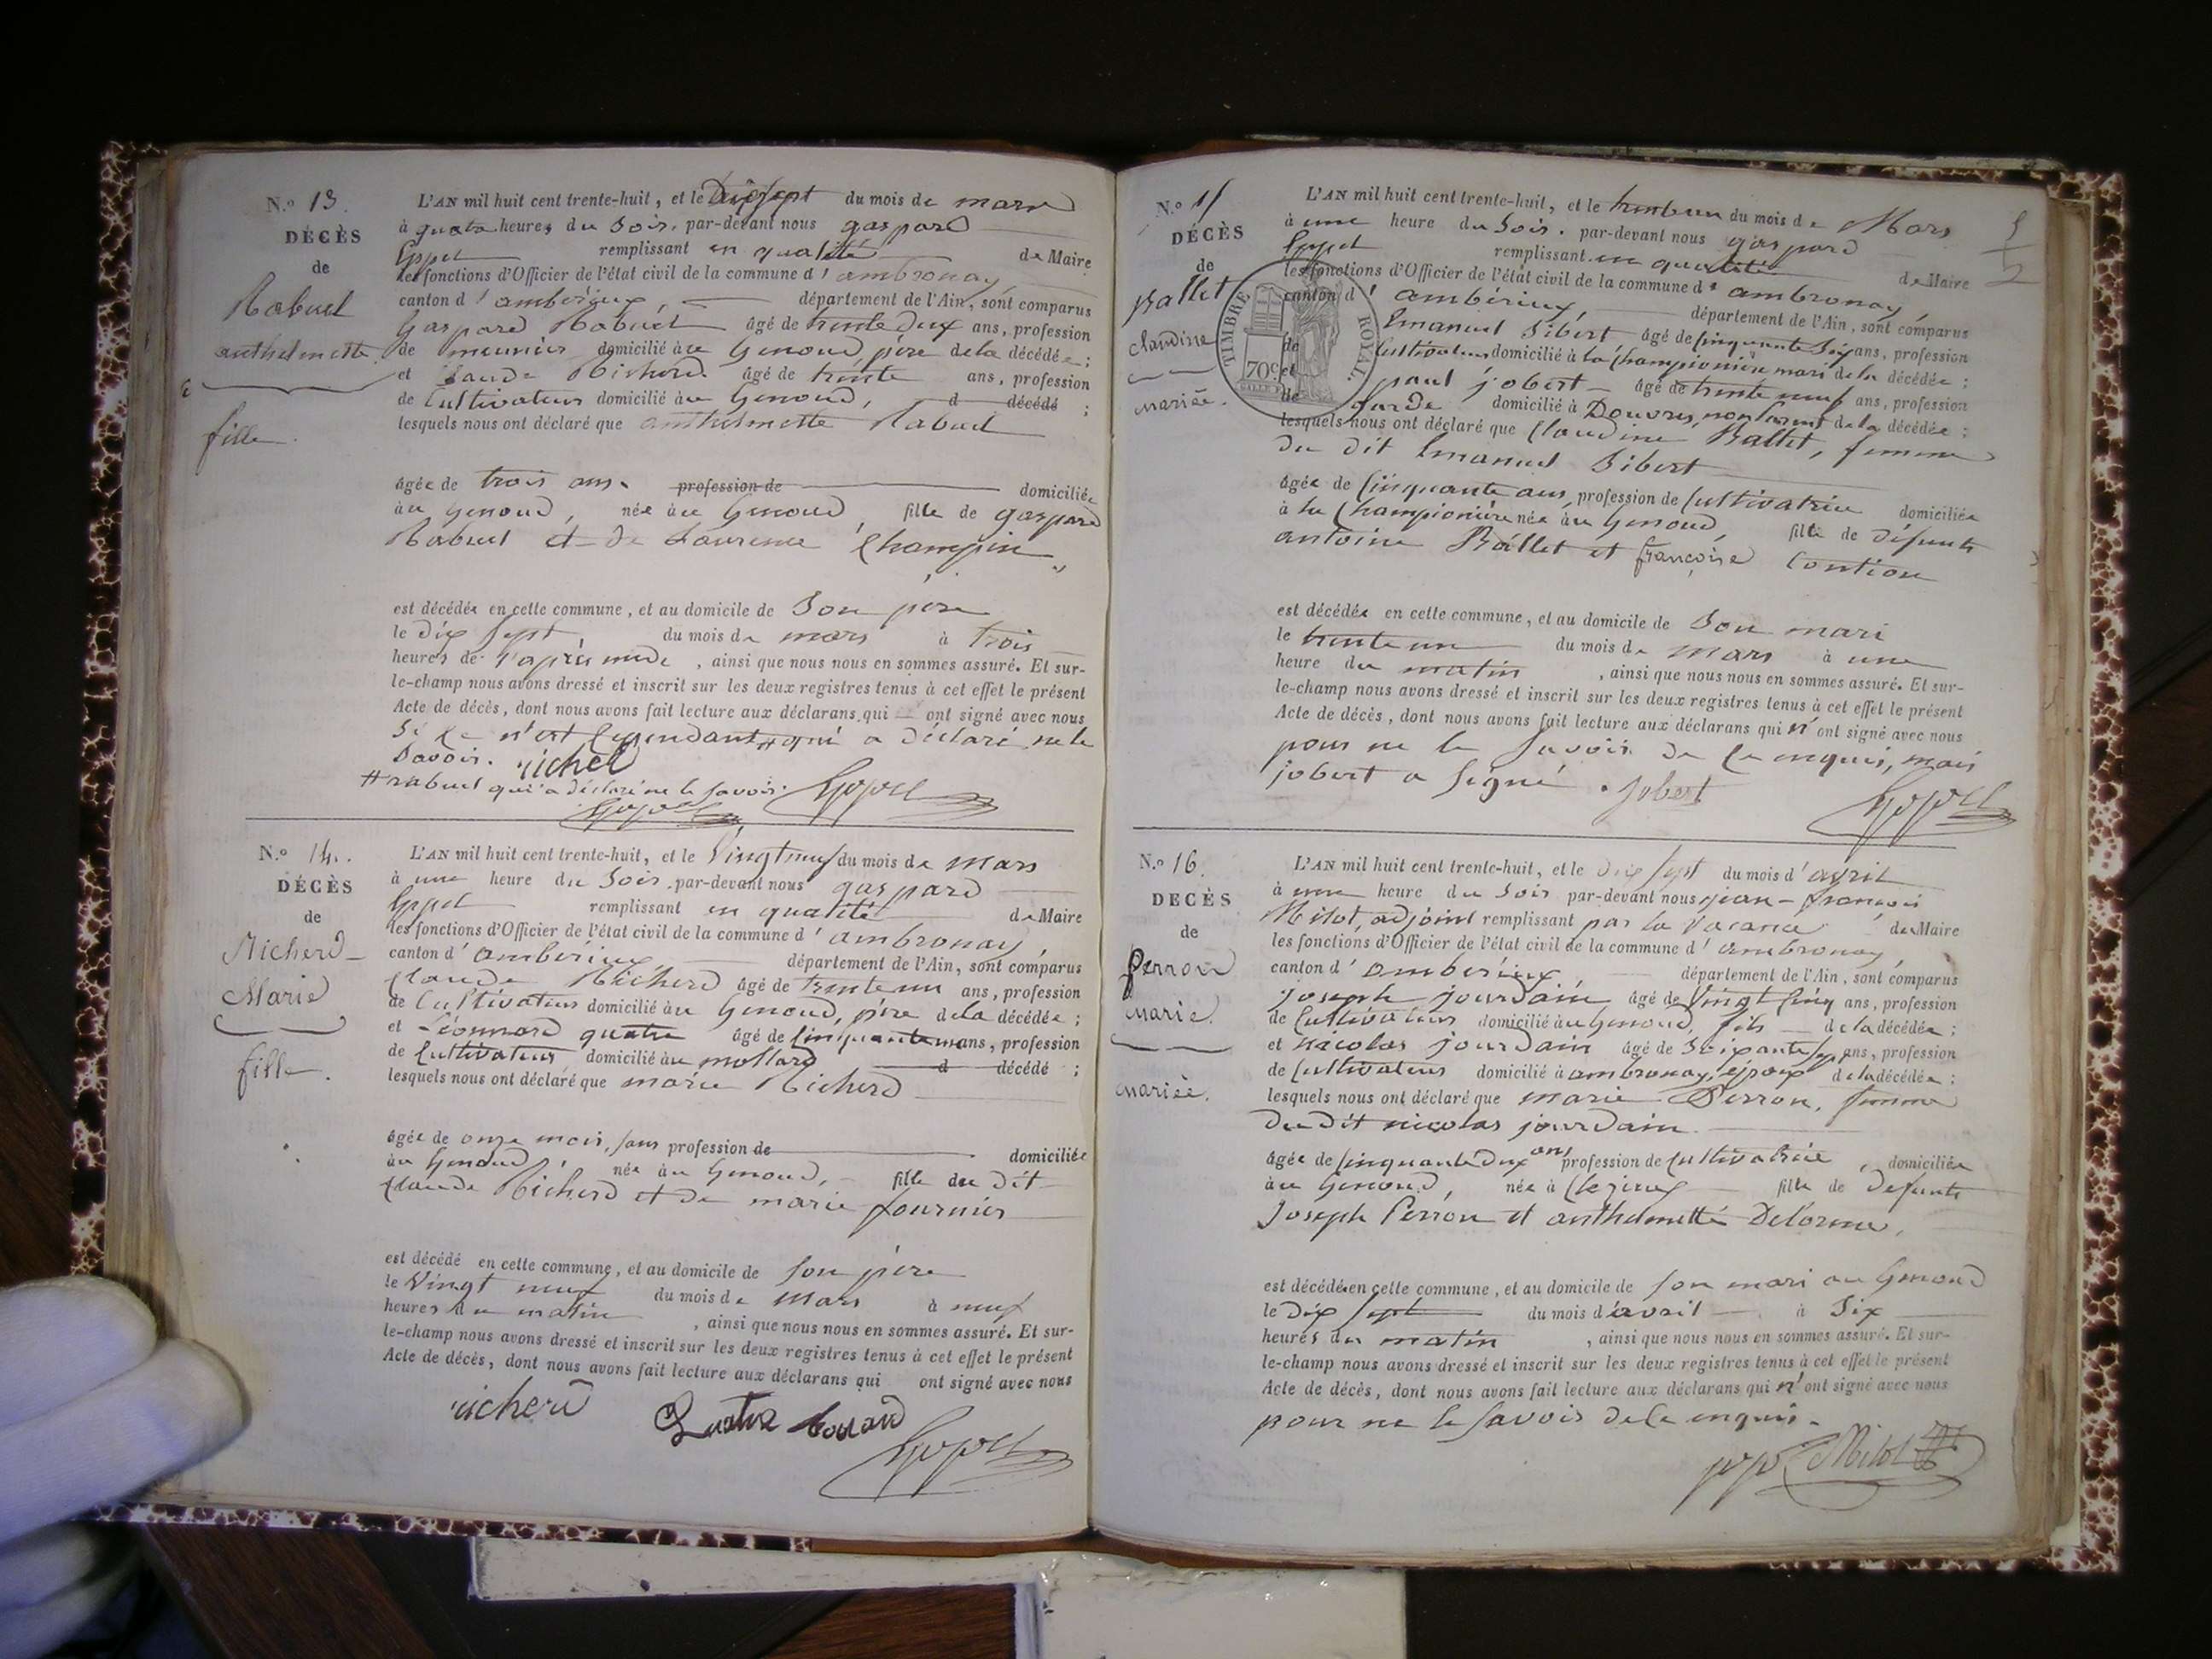 N.º 13.
DÉCÈS
de
Rabuel
anthelmette
fille.
L'AN mil huit cent trente-huit, et le Dix sept du mois de mars
à quatre heures du Soir, par-devant nous gaspard
remplissant en qualité de Maire
les fonctions d'Officier de l'état civil de la commune d'ambronay
canton d'ambérieux, département de l'Ain, sont comparus
Gaspard Rabuel âgé de trente deux ans, profession
de meunier domicilié au Genoud, père de la décédée ;
et Claude Richerd âgé de trente ans, profession
de Cultivateur domicilié au Genoud, d décédé ;
lesquels nous ont déclaré que anthelmette Rabuel
âgée de trois ans. profession de domiciliée
au Genoud, née au Genoud, fille de gaspard
Rabuel et de Laurence Champin
est décédée en cette commune, et au domicile de Son père
le dix Sept, du mois de mars à trois
heures de l'après midi, ainsi que nous nous en sommes assuré. Et sur-
le-champ nous avons dressé et inscrit sur les deux registres tenus à cet effet le présent
Acte de décès, dont nous avons fait lecture aux déclarans qui ont signé avec nous
Si ce n'est Cependant # qui a déclaré ne le
Savoir. richerd
# rabuel qui a déclaré ne le savoir.
N.º 14.
DÉCÈS
de
Richerd
Marie
fille.
L'AN mil huit cent trente-huit, et le Vingt neuf du mois de mars
à une heure du Soir, par-devant nous gaspard
remplissant en qualité de Maire
les fonctions d'Officier de l'état civil de la commune d'ambronay,
canton d'ambérieux, département de l'Ain, sont comparus
Claude Richerd âgé de trente un ans, profession
de Cultivateur domicilié au Genoud, père de la décédée ;
et Léonnard quatre âgé de Cinquante un ans, profession
de Cultivateur domicilié au mollard d décédé ;
lesquels nous ont déclaré que marie Richerd
âgée de onze mois, sans profession de domiciliée
au Genoud, née au Genoud, fille du dit
Claude Richerd et de marie fournier
est décédé en cette commune, et au domicile de Son père
le Vingt neuf du mois de Mars à neuf
heures du matin, ainsi que nous nous en sommes assuré. Et sur-
le-champ nous avons dressé et inscrit sur les deux registres tenus à cet effet le présent
Acte de décès, dont nous avons fait lecture aux déclarans qui ont signé avec nous
richerd
N.º 15
DÉCÈS
de
Ballet
claudine
mariée.
TIMBRE ROYAL.
70c
L'AN mil huit cent trente-huit, et le trente un du mois de Mars
à une heure du Soir. par-devant nous gaspard
remplissant en qualité de Maire
les fonctions d'Officier de l'état civil de la commune d'ambronay,
canton d'ambérieux, département de l'Ain, sont comparus
Emanuel Sibert âgé de Cinquante Six ans, profession
de Cultivateur domicilié à la Championière mari de la décédée ;
et paul jobert âgé de trente neuf ans, profession
de garde domicilié à Douvres, non parent de la décédée ;
lesquels nous ont déclaré que Claudine Ballet, femme
du dit Emanuel Sibert
âgée de Cinquante ans, profession de Cultivatrice domiciliée
à la Championière née au Genoud, fille de défunts
antoine Ballet et françoise Contion
est décédée en cette commune, et au domicile de Son mari
le trente un du mois de mars à une
heure du matin, ainsi que nous nous en sommes assuré. Et sur-
le-champ nous avons dressé et inscrit sur les deux registres tenus à cet effet le présent
Acte de décès, dont nous avons fait lecture aux déclarans qui n'ont signé avec nous
pour ne le Savoir de ce enquis, mais
jobert a Signé. Jobert
N.º 16.
DÉCÈS
de
Perron
marie.
mariée.
L'AN mil huit cent trente-huit, et le dix Sept du mois d'avril
à une heure du Soir par-devant nous jean-françois
Milot, adjoint remplissant par la Vacance du Maire
les fonctions d'Officier de l'état civil de la commune d'ambronay
canton d'ambérieux département de l'Ain, sont comparus
Joseph jourdain âgé de Vingt Cinq ans, profession
de Cultivateur domicilié au Genoud, fils de la décédée ;
et Nicolas jourdain âgé de Soixante Sept ans, profession
de Cultivateur domicilié à ambronay, époux de la décédée ;
lesquels nous ont déclaré que marie Perron, femme
du dit nicolas jourdain
âgée de Cinquante deux ans profession de Cultivatrice, domiciliée
au Genoud, née à Clezieux fille de défunts
Joseph Perron et anthelmette Delorme,
est décédée en cette commune, et au domicile de Son mari au Genoud
le Dix Sept du mois d'avril à Six
heures du matin, ainsi que nous nous en sommes assuré. Et sur-
le-champ nous avons dressé et inscrit sur les deux registres tenus à cet effet le présent
Acte de décès, dont nous avons fait lecture aux déclarans qui n'ont signé avec nous
pour ne le Savoir de ce enquis.
Milot